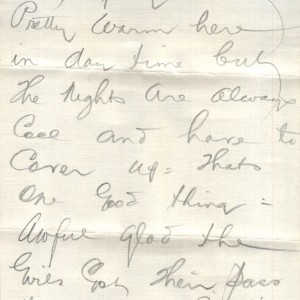 Pretty Warm here
in day time but
The Nights Are Always
Cool and have to
Cover up = Thats
One Good thing =
Awful glad the
Girls Got Their Pass